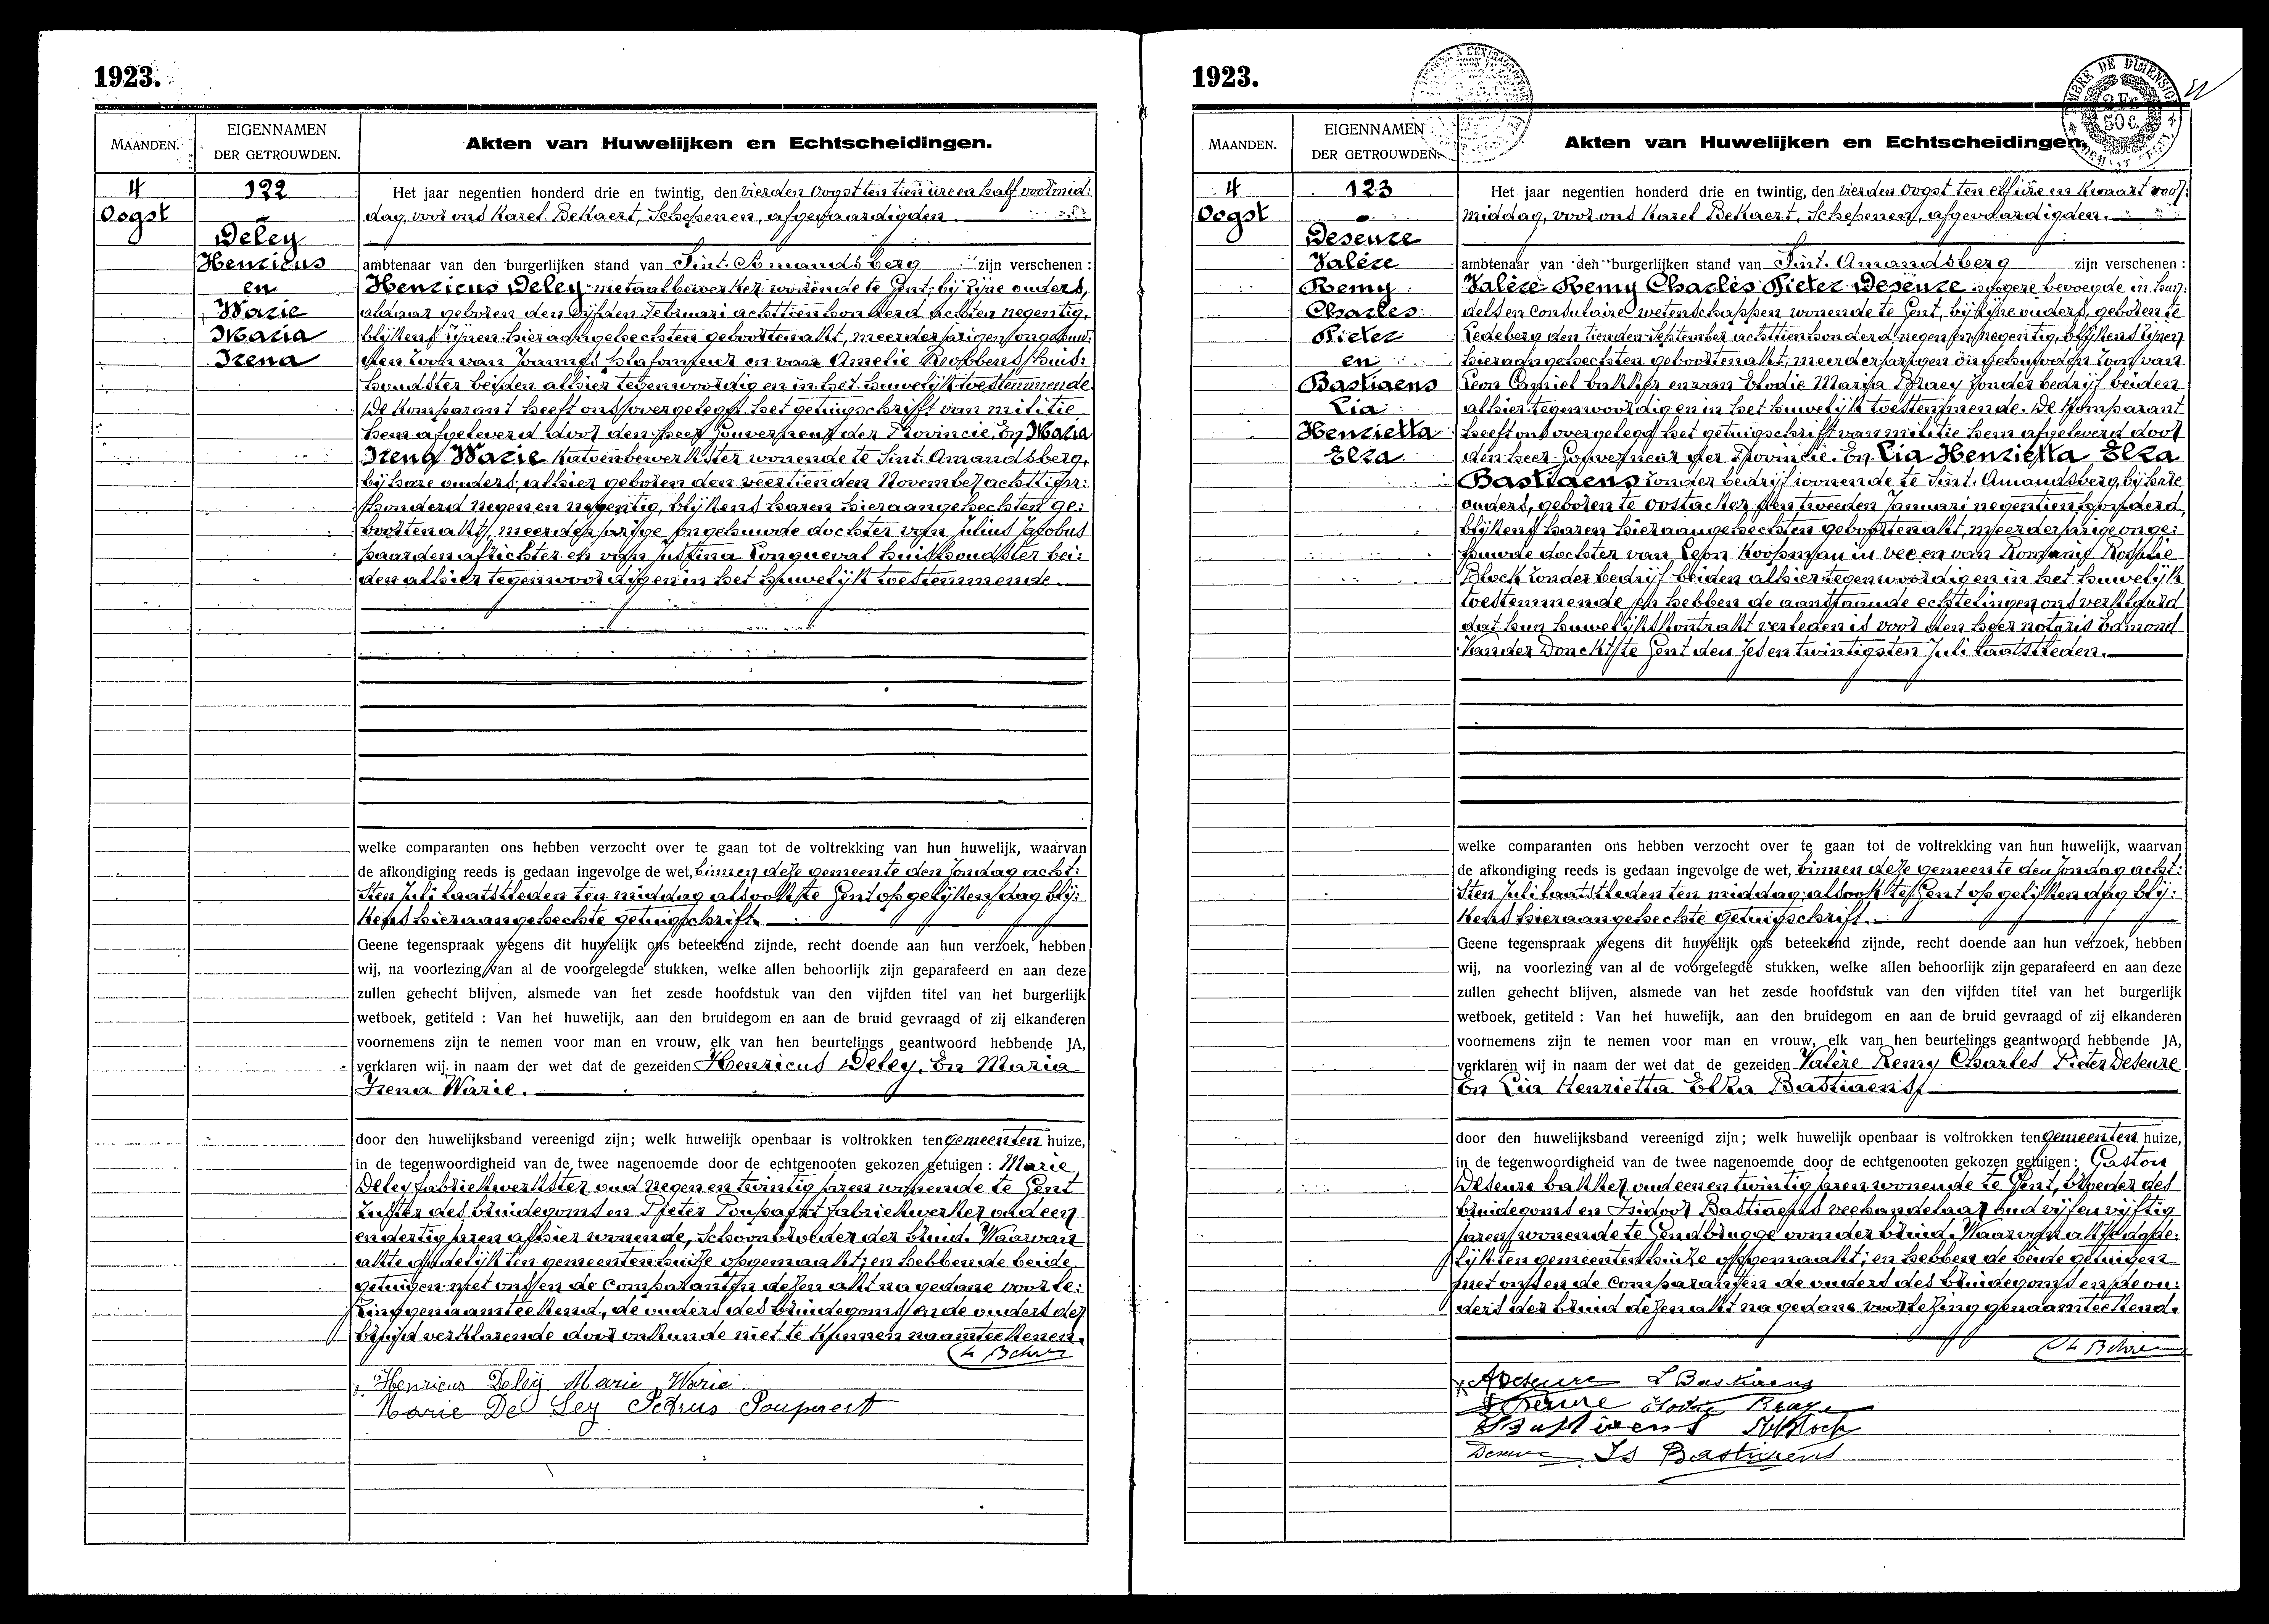 1923.
MAANDEN.
EIGENNAMEN
DER GETROUWDEN.
Akten van Huwelijken en Echtscheidingen.
4
Oogst
122
Deley
Henricus
en
Warie
Maria
Irena
Het jaar negentien honderd drie en twintig, den vierden Oogst ten tien ure en half voormid:
dag, voor ons Karel Bekaert, Schepenen, afgevaardigden
ambtenaar van den burgerlijken stand van Sint. Amandsberg zijn verschenen :
Henricus Deley metaalbewerker wonende te Gent, bij zijne ouders,
aldaar geboren den vijfden Februari achttienhonderd achten negentig,
blijkens zijnen hieraangehechten geboortenakt, meerderjarigen ongehuw:
den zoon van Joannes plafonfeur en van Amelie Robbens huis:
houdster beiden alhier tegenwoordig en in het huwelijk toestemmende.
De Komparant heeft ons overgelegd het getuigschrift van militie
hem afgeleverd door den heer Gouverneur der Provincie. En Maria
Irena Warie Katoenbewerkster wonende te Sint. Amandsberg,
bij hare ouders, alhier geboren den veertienden November achttien:
honderd negen en negentig, blijkens haren hieraangehechten ge:
boortenakt, meerderjarige ongehuwde dochter van Julius Jacobus
paardenafrichter en van Justina Longueval huishoudster bei:
den alhier tegenwoordig en in het huwelijk toestemmende.
welke comparanten ons hebben verzocht over te gaan tot de voltrekking van hun huwelijk, waarvan
de afkondiging reeds is gedaan ingevolge de wet, binnen deze gemeente den Zondag acht:
sten Juli laatstleden ten middag alsook te Gent op gelijken dag blij:
kens hieraangehechte getuigschrift.
Geene tegenspraak wegens dit huwelijk ons beteekend zijnde, recht doende aan hun verzoek, hebben
wij, na voorlezing van al de voorgelegde stukken, welke allen behoorlijk zijn geparafeerd en aan deze
zullen gehecht blijven, alsmede van het zesde hoofdstuk van den vijfden titel van het burgerlijk
wetboek, getiteld : Van het huwelijk, aan den bruidegom en aan de bruid gevraagd of zij elkanderen
voornemens zijn te nemen voor man en vrouw, elk van hen beurtelings geantwoord hebbende JA,
verklaren wij in naam der wet dat de gezeiden Henricus Deley. En Maria
Irena Warie.
door den huwelijksband vereenigd zijn; welk huwelijk openbaar is voltrokken ten gemeenten huize,
in de tegenwoordigheid van de twee nagenoemde door de echtgenooten gekozen getuigen : Marie
Deley fabriekwerkster oud negen en twintig jaren wonende te Gent
zuster des bruidegoms en Pieter Poupaert fabriekwerker oud een
en dertig jaren alhier wonende, schoonbroeder der bruid. Waarvan
akte dadelijk ten gemeentenhuize opgemaakt; en hebben de beide
getuigen met ons en de Comparanten dezen akt na gedane voorle:
zing genaamteekend, de ouders des bruidegoms en de ouders der
bruid verklarende door onkunde niet te kunnen naamteekenen.
Henricus Deley Marie Warie
Marie De Ley Petrus Poupaert
1923.
MAANDEN.
EIGENNAMEN
DER GETROUWDEN.
Akten van Huwelijken en Echtscheidingen.
TIMBRE DE DIMENSION
2 Fr.
50 C.
4
Oogst
123
Deseure
Valère
Remy
Charles
Pieter
en
Bastiaens
Lia
Henrietta
Elza
Het jaar negentien honderd drie en twintig, den vierden Oogst ten elf ure en kwaart voor:
middag, voor ons Karel Bekaert, Schepenen, afgevaardigden.
ambtenaar van den burgerlijken stand van Sint. Amandsberg zijn verschenen :
Valère Remy Charles Pieter Deseure hogere bevoegde in han:
dels en consulaire wetenschappen wonende te Gent, bij zijne ouders, geboren te
Ledeberg den tienden September achttienhonderd negen en negentig, blijkens zijnen
hieraangehechten geboortenakt, meerderjarigen ongehuwden zoon van
Leon Camiel bakker en van Elodie Maria Braey zonder bedrijf beiden
alhier tegenwoordig en in het huwelijk toestemmende. De Komparant
heeft ons overgelegd het getuigschrift van militie hem afgeleverd door
den heer Gouverneur der Provincie. En Lia Henrietta Elza
Bastiaens zonder bedrijf wonende te Sint. Amandsberg, bij hare
ouders, geboren te Oostacker den tweeden Januari negentienhonderd,
blijkens haren hieraangehechten geboortenakt, meerderjarige onge:
huwde dochter van Leon Koopman in vee en van Romanie Rosalie
Block zonder bedrijf beiden alhier tegenwoordig en in het huwelijk
toestemmende en hebben de aanstaande echtelingen ons verklaard
dat hun huwelijkskontrakt verleden is voor den heer notaris Edmond
Van der Donckt te Gent den zes en twintigsten Juli laatstleden.
welke comparanten ons hebben verzocht over te gaan tot de voltrekking van hun huwelijk, waarvan
de afkondiging reeds is gedaan ingevolge de wet, binnen deze gemeente den Zondag acht:
sten Juli laatstleden ten middag alsook te Gent op gelijken dag blij:
kens hieraangehechte getuigschrift.
Geene tegenspraak wegens dit huwelijk ons beteekend zijnde, recht doende aan hun verzoek, hebben
wij, na voorlezing van al de voorgelegde stukken, welke allen behoorlijk zijn geparafeerd en aan deze
zullen gehecht blijven, alsmede van het zesde hoofdstuk van den vijfden titel van het burgerlijk
wetboek, getiteld : Van het huwelijk, aan den bruidegom en aan de bruid gevraagd of zij elkanderen
voornemens zijn te nemen voor man en vrouw, elk van hen beurtelings geantwoord hebbende JA,
verklaren wij in naam der wet dat de gezeiden Valère Remy Charles Pieter Deseure
En Lia Henrietta Elza Bastiaens
door den huwelijksband vereenigd zijn; welk huwelijk openbaar is voltrokken ten gemeenten huize,
in de tegenwoordigheid van de twee nagenoemde door de echtgenooten gekozen getuigen : Gaston
Deseure bakker oud een en twintig jaren wonende te Gent, broeder des
bruidegoms en Isidoor Bastiaens veehandelaar oud vijf en vijftig
jaren wonende te Gendbrugge oom der bruid. Waarvan akte dade:
lijk ten gemeentenhuize opgemaakt; en hebben de beide getuigen
met ons en de Comparanten de ouders des bruidegoms en de ou:
ders der bruid dezen akt na gedane voorlezing genaamteekend.
Deseure L Bastiaens
Deseure Elodie Braey
Bastiaens R Block
Deseure Is Bastiaens